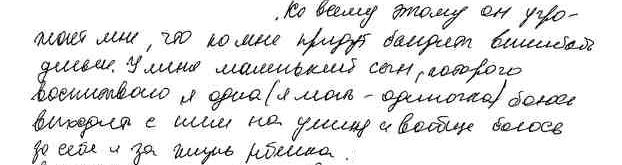 Ко всему этому он угро-
жает мне, что ко мне придут бандиты вышибать
деньги. У меня маленький сын, которого
воспитываю я одна (я мать - одиночка) боюсь
выходить с ним на улицу и вообще боюсь
за себя и за жизнь ребенка.